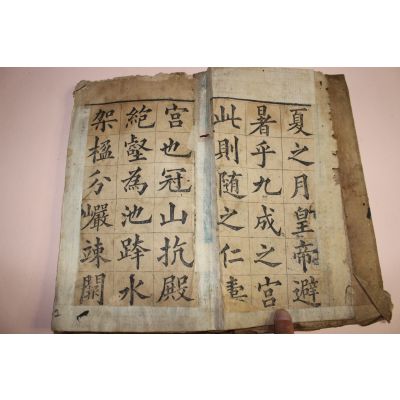 夏之月皇帝避
暑乎九成之宮
此則隨之仁壽
宮也冠山抗殿
絶壑為池跨水
架楹分巗竦闕